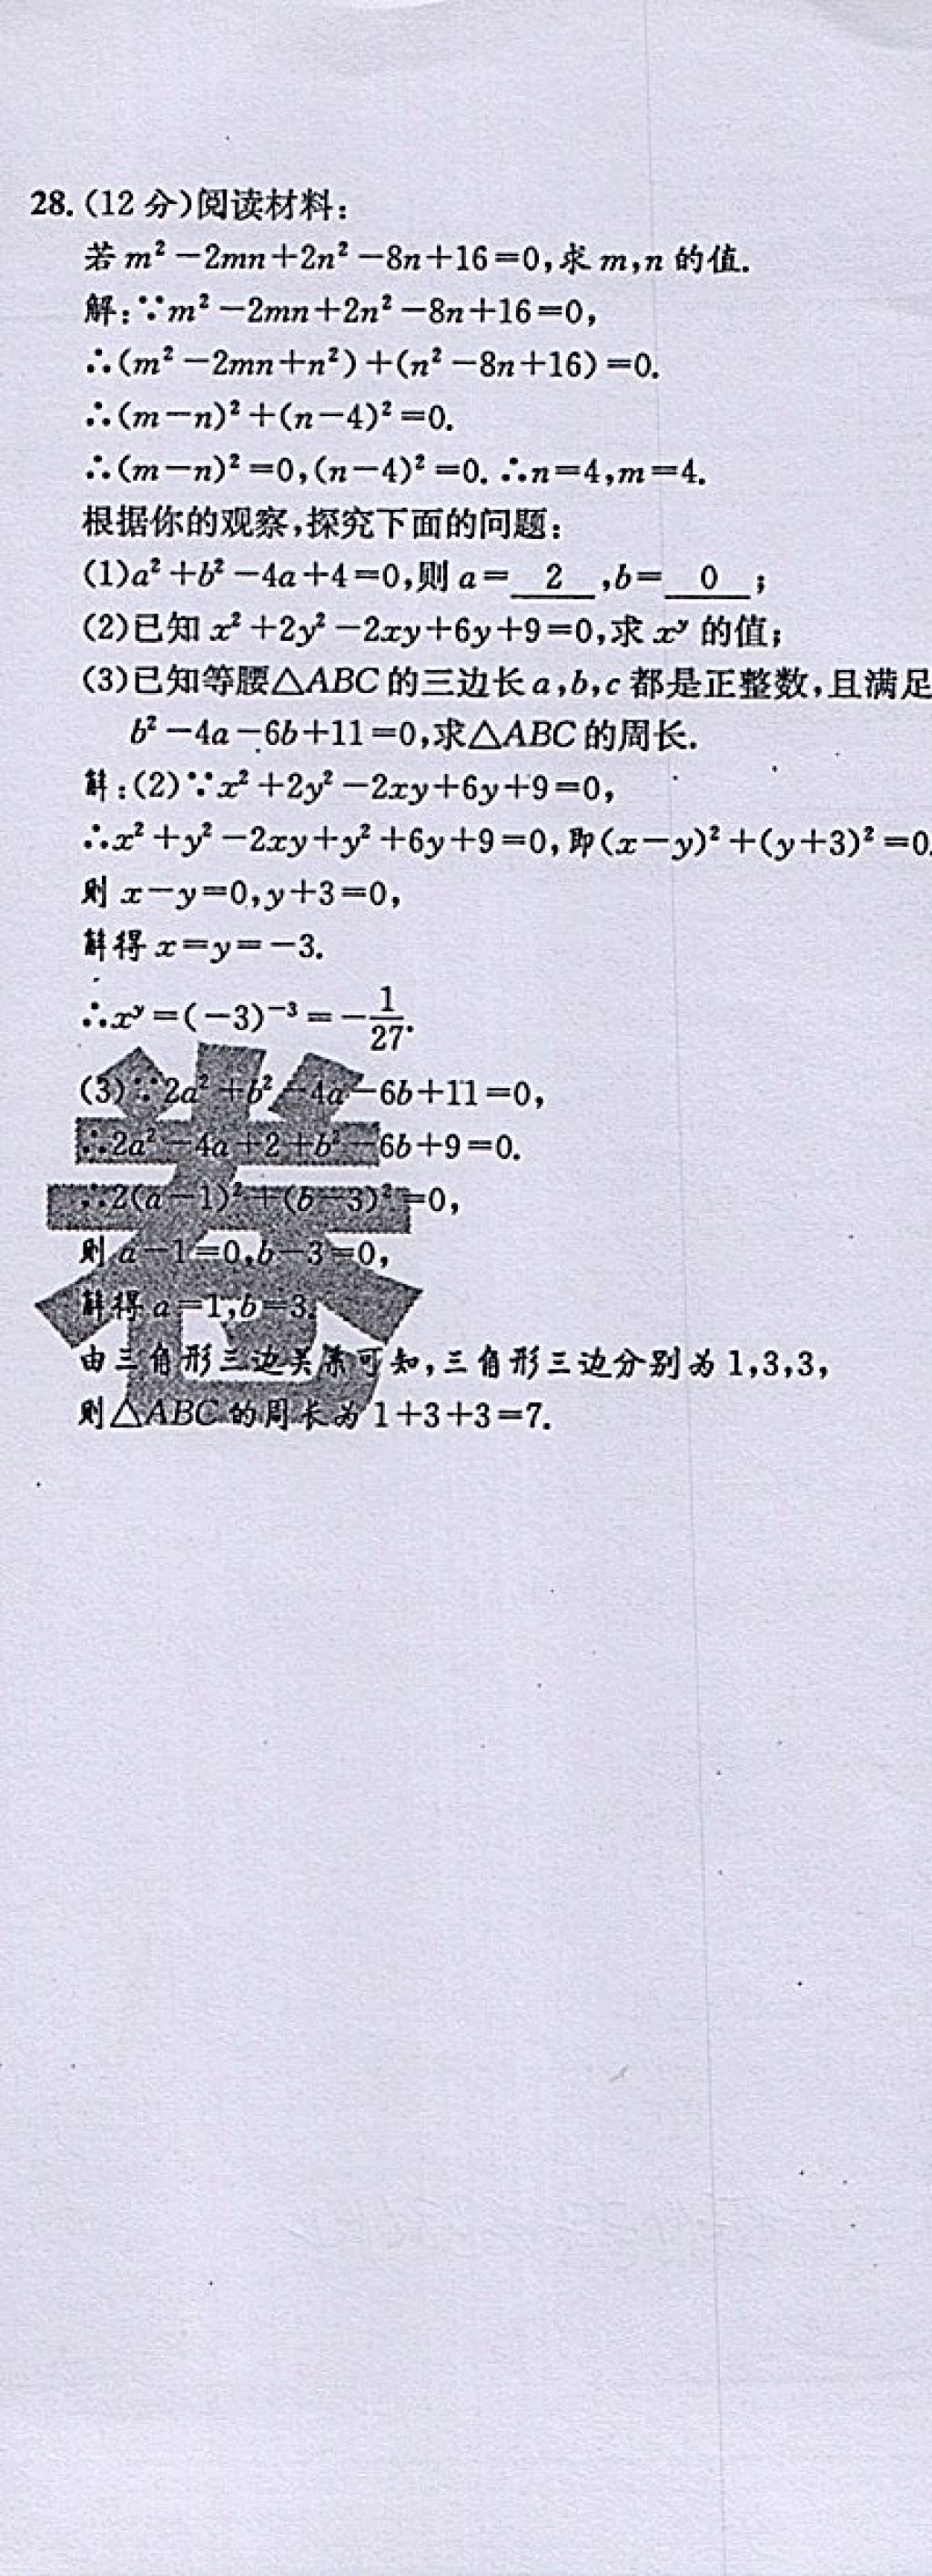 28.(12分)阅读材料:
若m²-2mn+2n²-8n+16=0,求m,n的值.
解:∵m²-2mn+2n²-8n+16=0,
∴(m²-2mn+n²)+(n²-8n+16)=0.
∴(m-n)²+(n-4)²=0.
∴(m-n)²=0,(n-4)²=0.∴n=4,m=4.
根据你的观察,探究下面的问题:
(1)a²+b²-4a+4=0,则a= 2 ,b= 0 ;
(2)已知x²+2y²-2xy+6y+9=0,求xʸ的值;
(3)已知等腰△ABC的三边长a,b,c都是正整数,且满足
b²-4a-6b+11=0,求△ABC的周长.
解:(2)∵x²+2y²-2xy+6y+9=0,
∴x²+y²-2xy+y²+6y+9=0,即(x-y)²+(y+3)²=0.
则x-y=0,y+3=0,
解得x=y=-3.
∴xʸ=(-3)⁻³=-1/27.
(3)∵2a²+b²-4a-6b+11=0,
∴2a²-4a+2+b²-6b+9=0.
∴2(a-1)²+(b-3)²=0,
则a-1=0,b-3=0,
解得a=1,b=3.
由三角形三边关系可知,三角形三边分别为1,3,3,
则△ABC的周长为1+3+3=7.